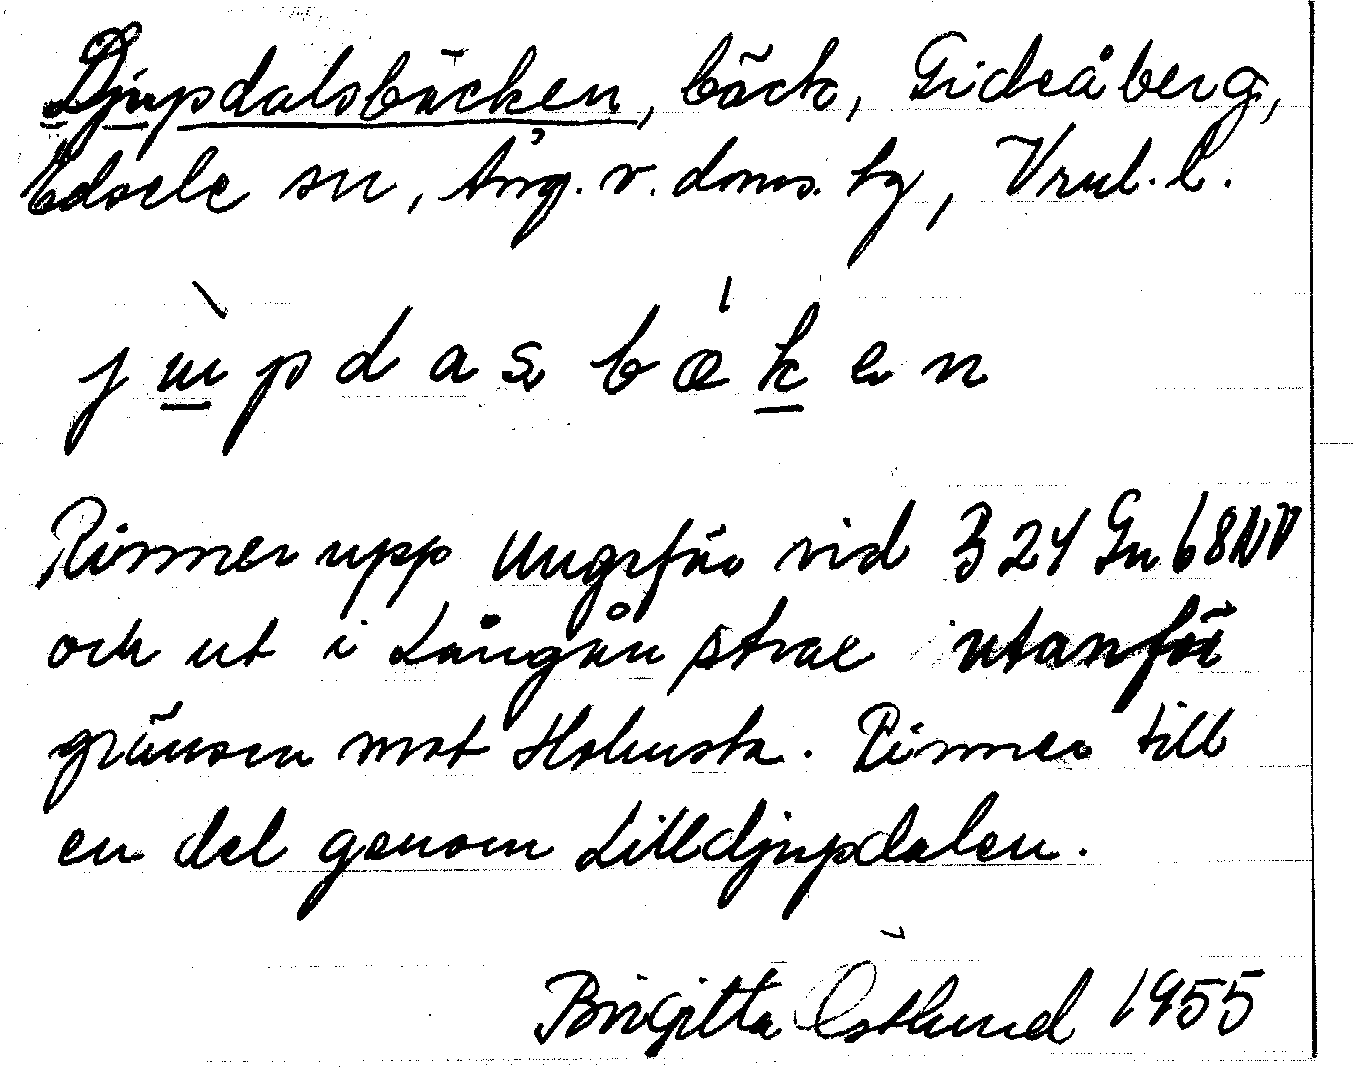 Djupdalsbäcken, bäck, Gideåberg,
Edsele sn, Ång. v. doms. tg, Vnul. l.
jupdasbæken
Rinner upp ungefär vid 3 24 Gn 68 NV
och ut i Långån strax utanför
gränsen mot Holmstr. Rinner till
en del genom Lilldjupdalen.
Birgitta Östlund 1955